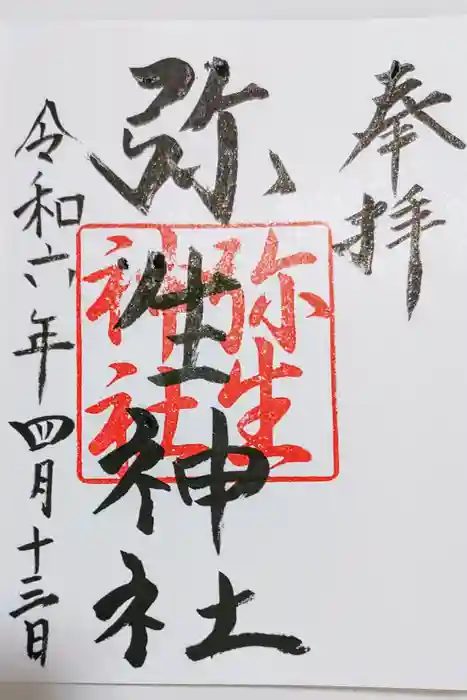 奉拝
弥生神社
弥生
神社
令和六年四月十三日